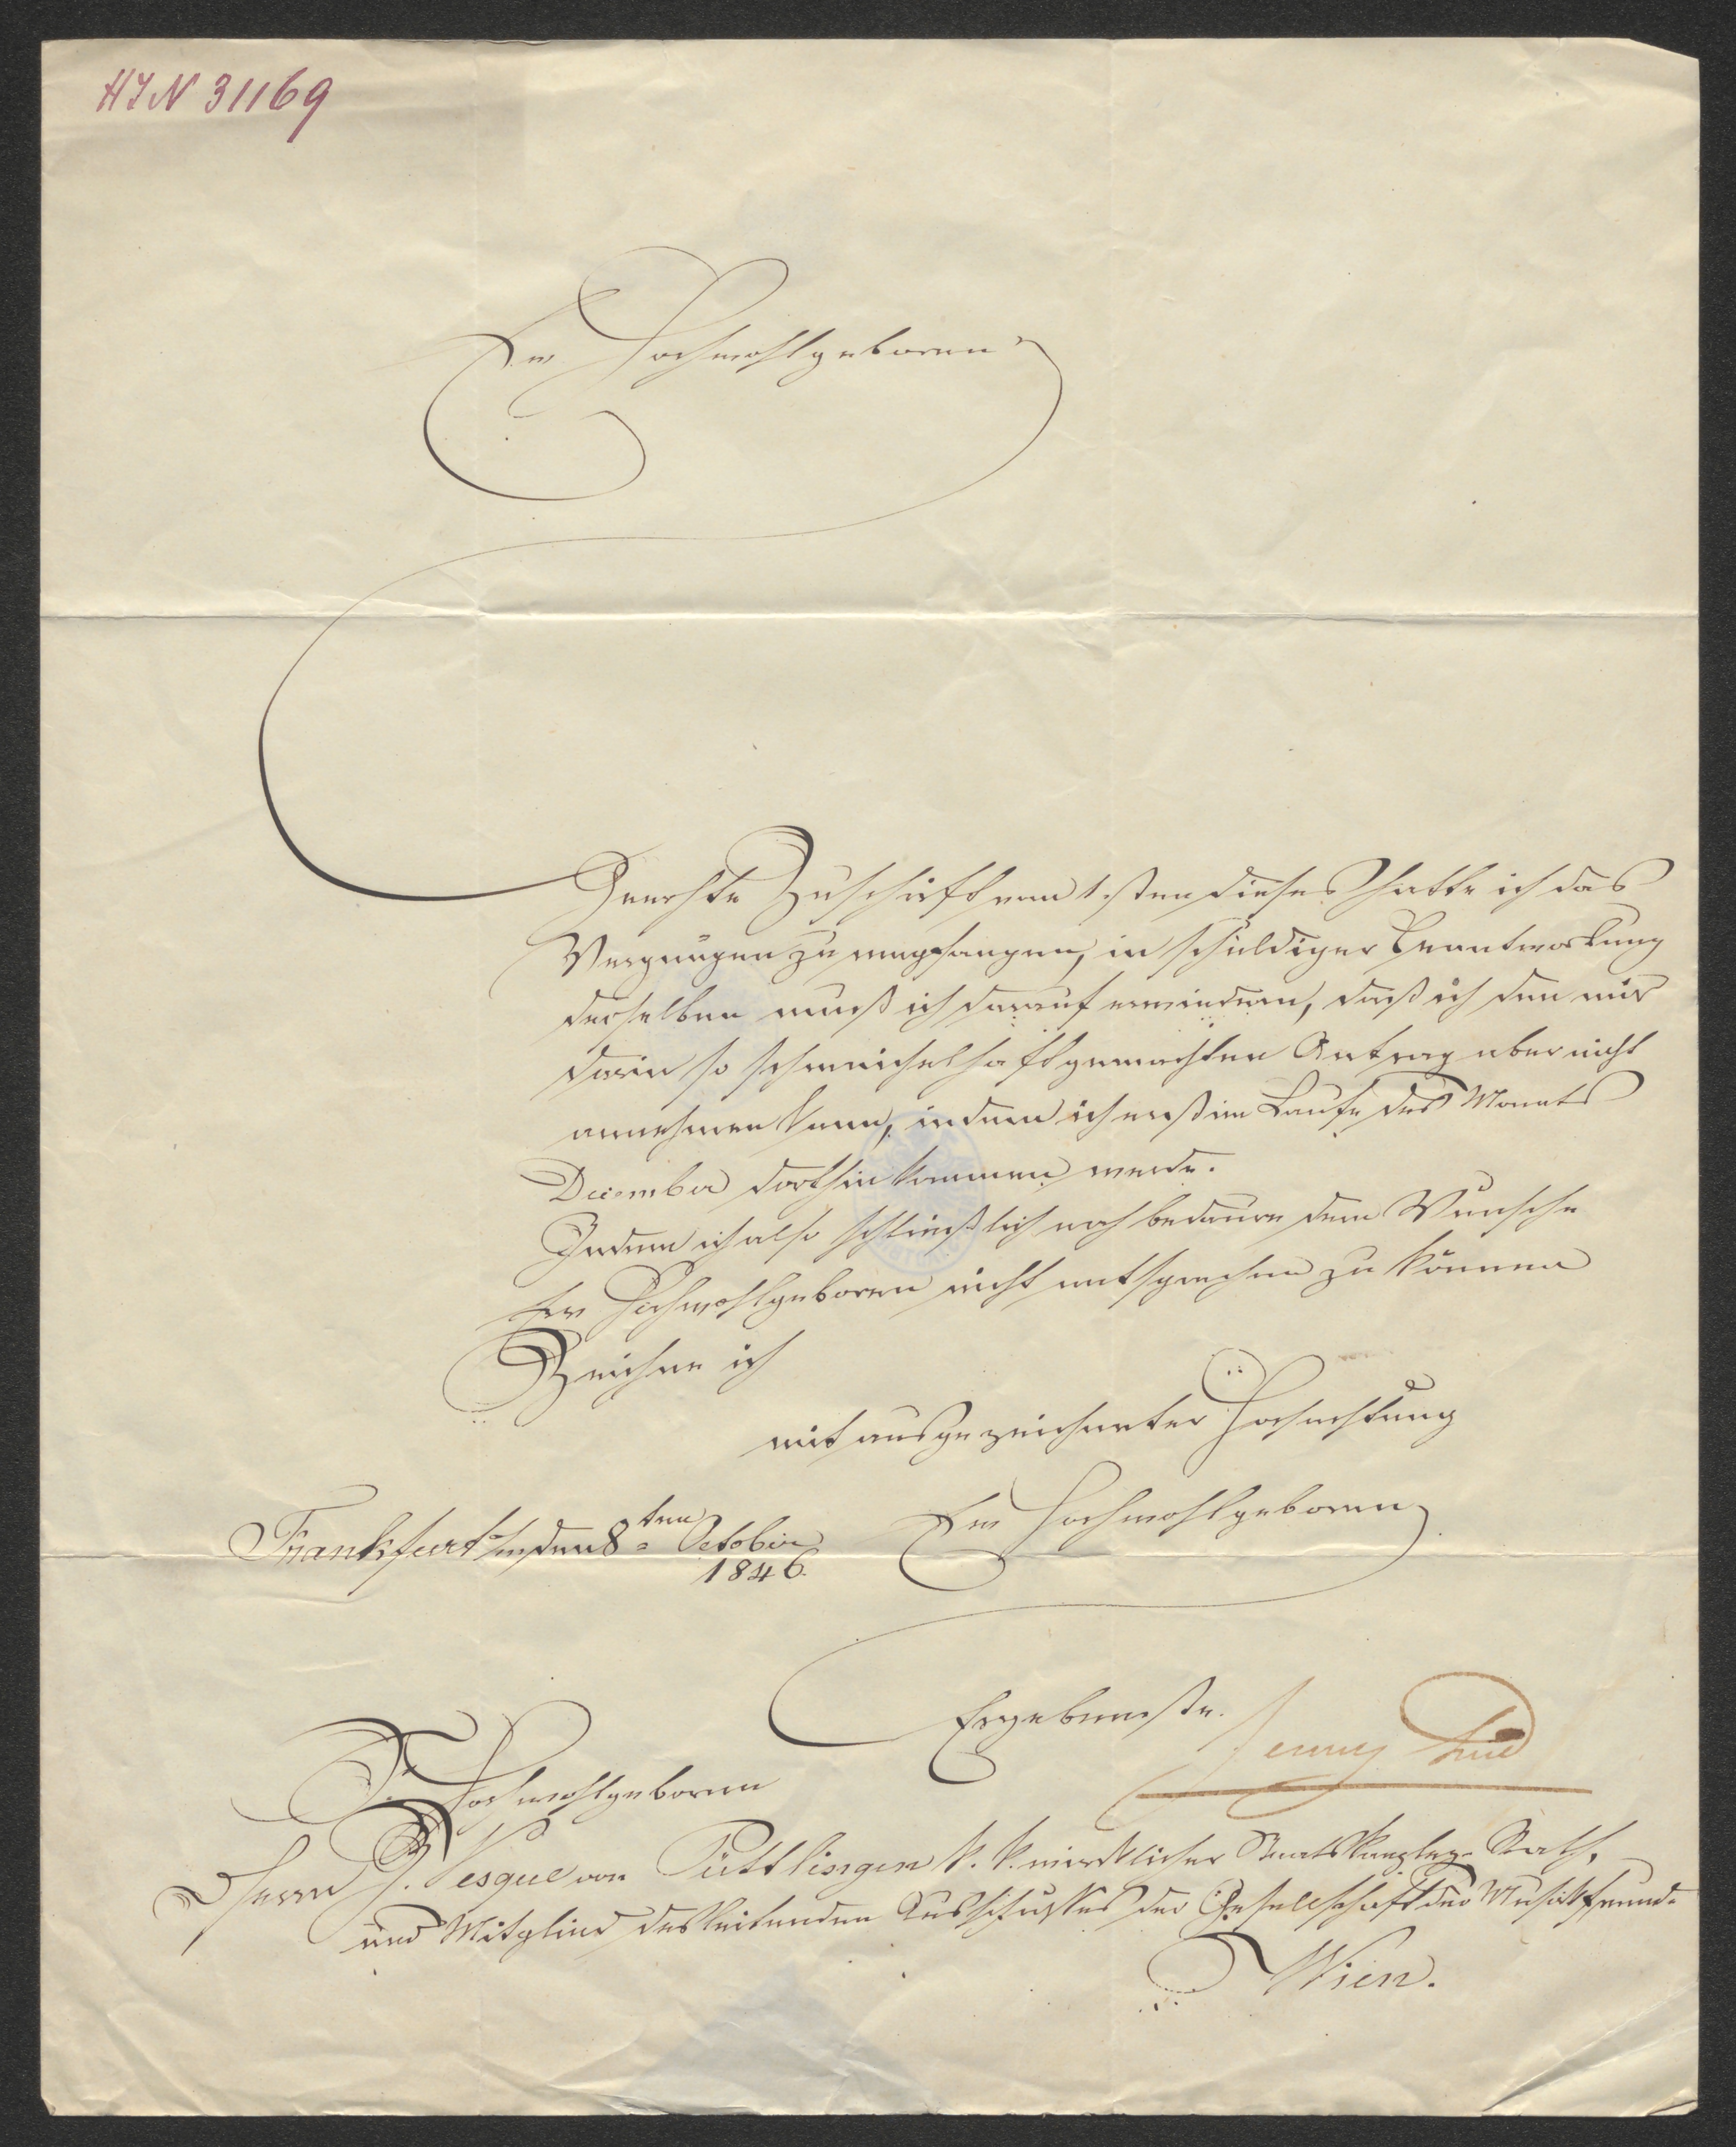 HIN 31169
Ew Hochwohlgeboren
Geehrte Zuschrift vom 1.sten dieses hatte ich das
Vergnügen zu empfangen, in schuldiger Beantwortung
derselben muß ich darauf erwiedern, daß ich den mir
darin so schmeichelhaft gemachten Antrag aber nicht
annehmen kann, indem ich erst im Laufe des Monats
December dorthin kommen werde.
Indem ich also schließlich noch bedaure dem Wunsche
Ew Hochwohlgeboren nicht entsprechen zu können
Zeichne ich
mit ausgezeichneter Hochachtung
Ew Hochwohlgeboren
Frankfurt den 8ten October
1846.
Ergebenste.
Jenny Lind
Sr Hochwohlgeboren
Herrn J. Vesque von Püttlingen k. k. wirklicher Staatskanzley-Rath,
und Mitglied des leitenden Ausschußes der Gesellschaft der Musikfreunde
Wien.